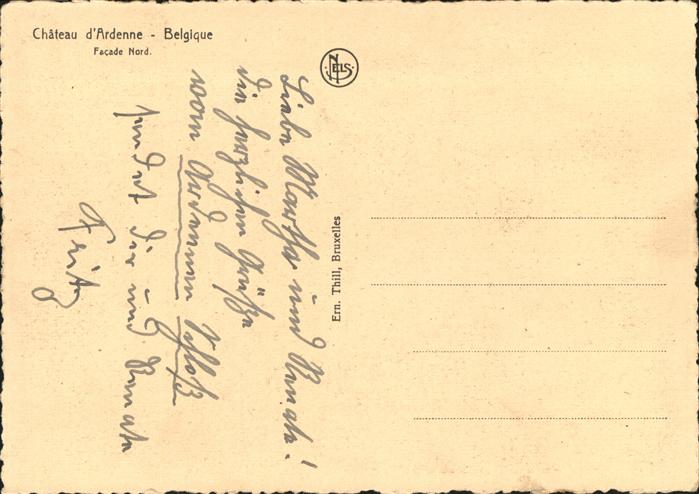 Château d'Ardenne - Belgique
Façade Nord.
NELS
Liebe Martha und Renate!
die herzlichen Grüße
vom Ardennen Schloß
sendet dir und Renate
Fritz
Ern. Thill, Bruxelles